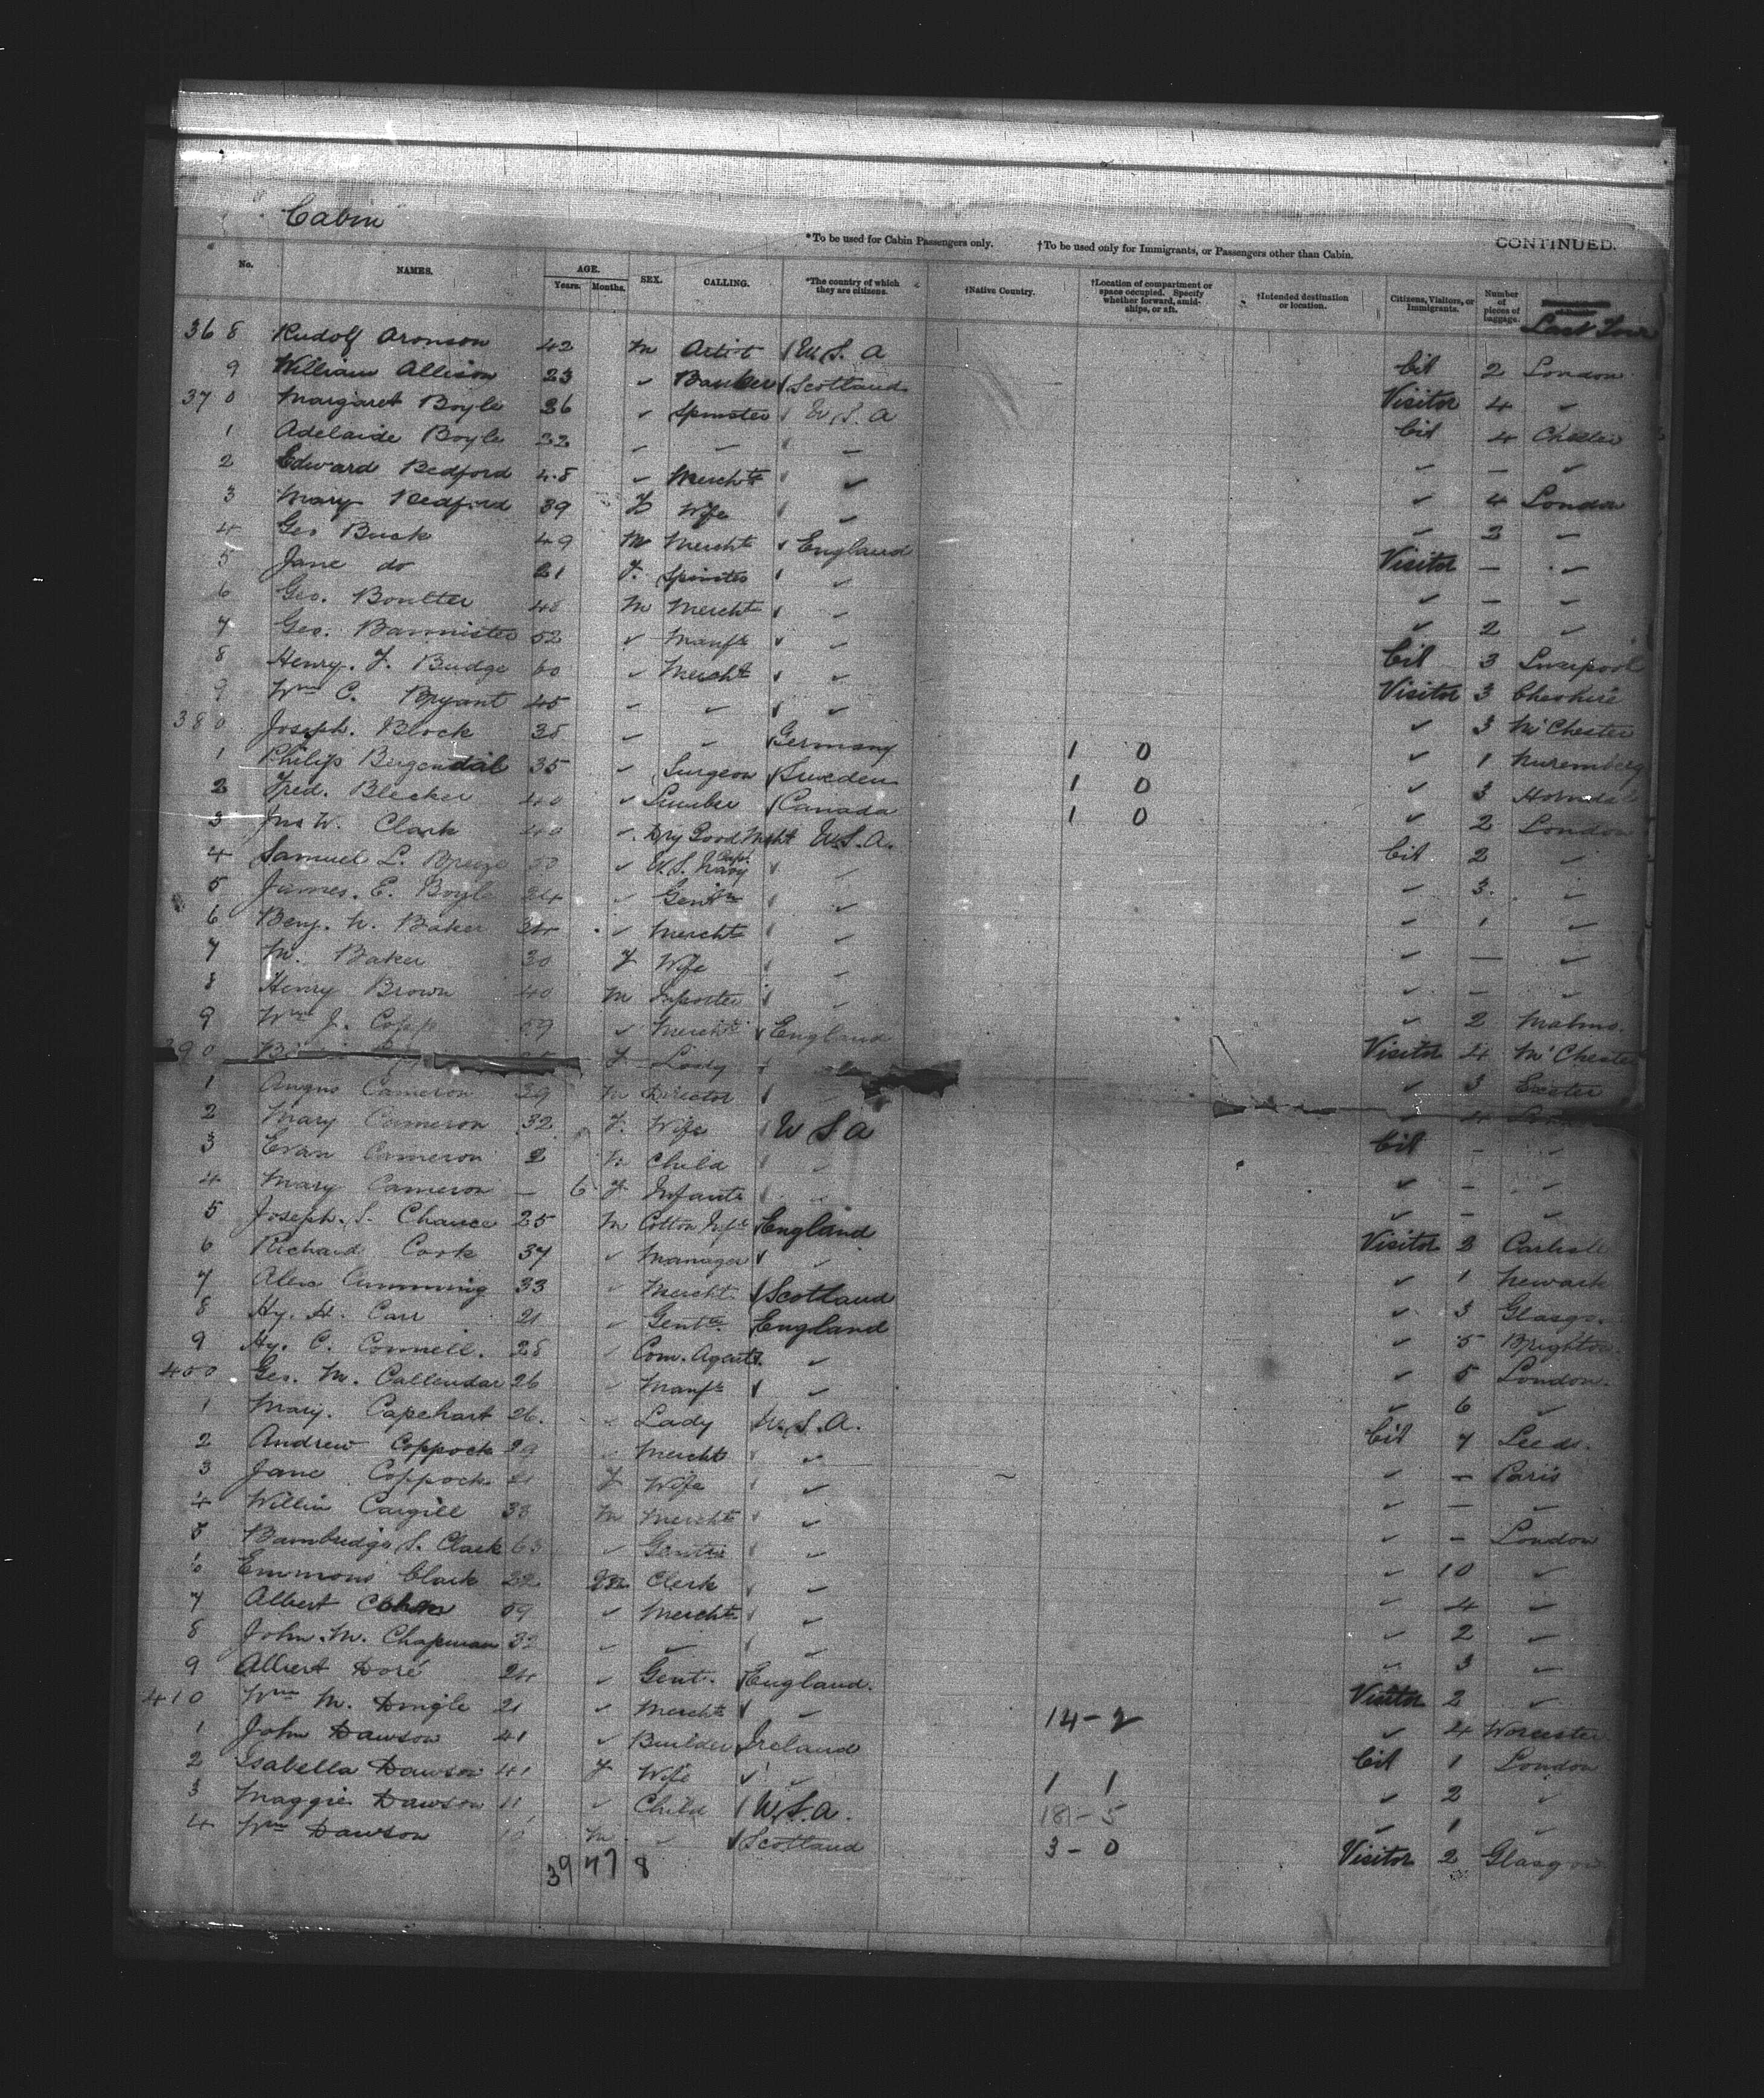 Cabin
*To be used for Cabin Passengers only. †To be used only for Immigrants, or Passengers other than Cabin. CONTINUED.
No. NAMES. AGE. Years. Months. SEX. CALLING. *The country of which they are citizens. †Native Country. †Location of compartment or space occupied. Specify whether forward, amidships, or aft. †Intended destination or location. Citizens, Visitors, or Immigrants. Number of pieces of baggage. Last Town
368 Rudolf Aronson 42 M Artist U.S.A Cit 2 London
9 William Allison 23 ✓ Banker Scotland Visitor 4 ✓
370 Margaret Boyle 36 ✓ Spinster U.S.A Cit 4 Chester
1 Adelaide Boyle 32 – – – ✓ – ✓
2 Edward Bedford 48 ✓ Mercht ✓ ✓ 4 London
3 Mary Bedford 39 F Wife ✓ ✓ 2 –
4 Geo Buck 49 M Mercht England Visitor – ✓
5 Jane do 21 F. Spinster ✓ ✓ – –
6 Geo. Boulter 48 M Mercht ✓ ✓ 2 ✓
7 Geo. Bannister 52 ✓ Manfr ✓ Cit 3 Liverpool
8 Henry. F. Budge 60 ✓ Mercht ✓ Visitor 3 Cheshire
9 Wm C. Bryant 45 – ✓ ✓ ✓ 3 M'Chester
380 Joseph. Block 38 – – Germany 1 0 ✓ 1 Nuremberg
1 Philip Bergendal 35 ✓ Surgeon Sweden 1 0 ✓ 3
2 Fred. Blecker 40 ✓ Canada 1 0 ✓ 2 London
3 Jno W. Clark 40 ✓ Dry Good Mcht U.S.A. Cit 2 ✓
4 Samuel L. Breeze 50 ✓ U.S. Navy Capt. – 3. ✓
5 James. E. Boyle 24 ✓ Gentn ✓ – 1 ✓
6 Benj. W. Baker ✓ Mercht ✓ ✓ — ✓
7 M. Baker 30 F Wife ✓ ✓ – ✓
8 Henry Brown 40 M Importer ✓ ✓ 2 Malmo.
9 Wm J. Copp 59 ✓ Mercht England Visitor 4 M'Chester
390 F Lady ✓ 3 Exeter
1 Angus Cameron 39 M Director ✓ 4 London
2 Mary Cameron 32 F. Wife U S A Cit – ✓
3 Evan Cameron 2 M Child ✓ ✓ – ✓
4 Mary Cameron – 6 F Infant ✓ ✓ – ✓
5 Joseph. S. Chance 25 M Cotton Mfr England Visitor 3 Carlisle
6 Richard Cook 37 ✓ Manager ✓ ✓ 1 Newark
7 Alex Cumming 33 ✓ Mercht Scotland ✓ 3 Glasgo.
8 Hy. H. Carr 21 ✓ Gentn England ✓ 5 Brighton
9 Hy. C. Connell. 28 ✓ Com. Agent ✓ ✓ 5 London.
400 Geo. M. Callendar 26 ✓ Manfr ✓ ✓ 6 ✓
1 Mary. Capehart 26. ✓ Lady U.S.A. Cit 7 Leeds.
2 Andrew Coppock 29 ✓ Mercht ✓ ✓ – Paris
3 Jane Coppock 21 F Wife ✓ ✓ – ✓
4 Cargill 38 M Mercht ✓ ✓ – London
5 Bambridge S. Clark 63 ✓ Gentn ✓ ✓ 10 ✓
6 Emmons Clark 22 M Clerk ✓ ✓ 4 ✓
7 Albert Cohen 59 ✓ Mercht ✓ ✓ 2 ✓
8 John. M. Chapman 32 ✓ ✓ ✓ ✓ 3 ✓
9 Albert Doré 24 ✓ Gent. England. Visitor 2 ✓
410 Wm M. Dingle 21 ✓ Mercht ✓ 14-2 ✓ 4 Worcester
1 John Dawson 41 ✓ Builder Ireland Cit 1 London
2 Isabella Dawson 41 F Wife ✓ 1 1 ✓ 2 ✓
3 Maggie Dawson 11 ✓ Child U.S.A. 181-5 ✓ 1 ✓
4 Wm Dawson 10 M ✓ Scotland 3-0 Visitor 2 Glasgow
39 47 8